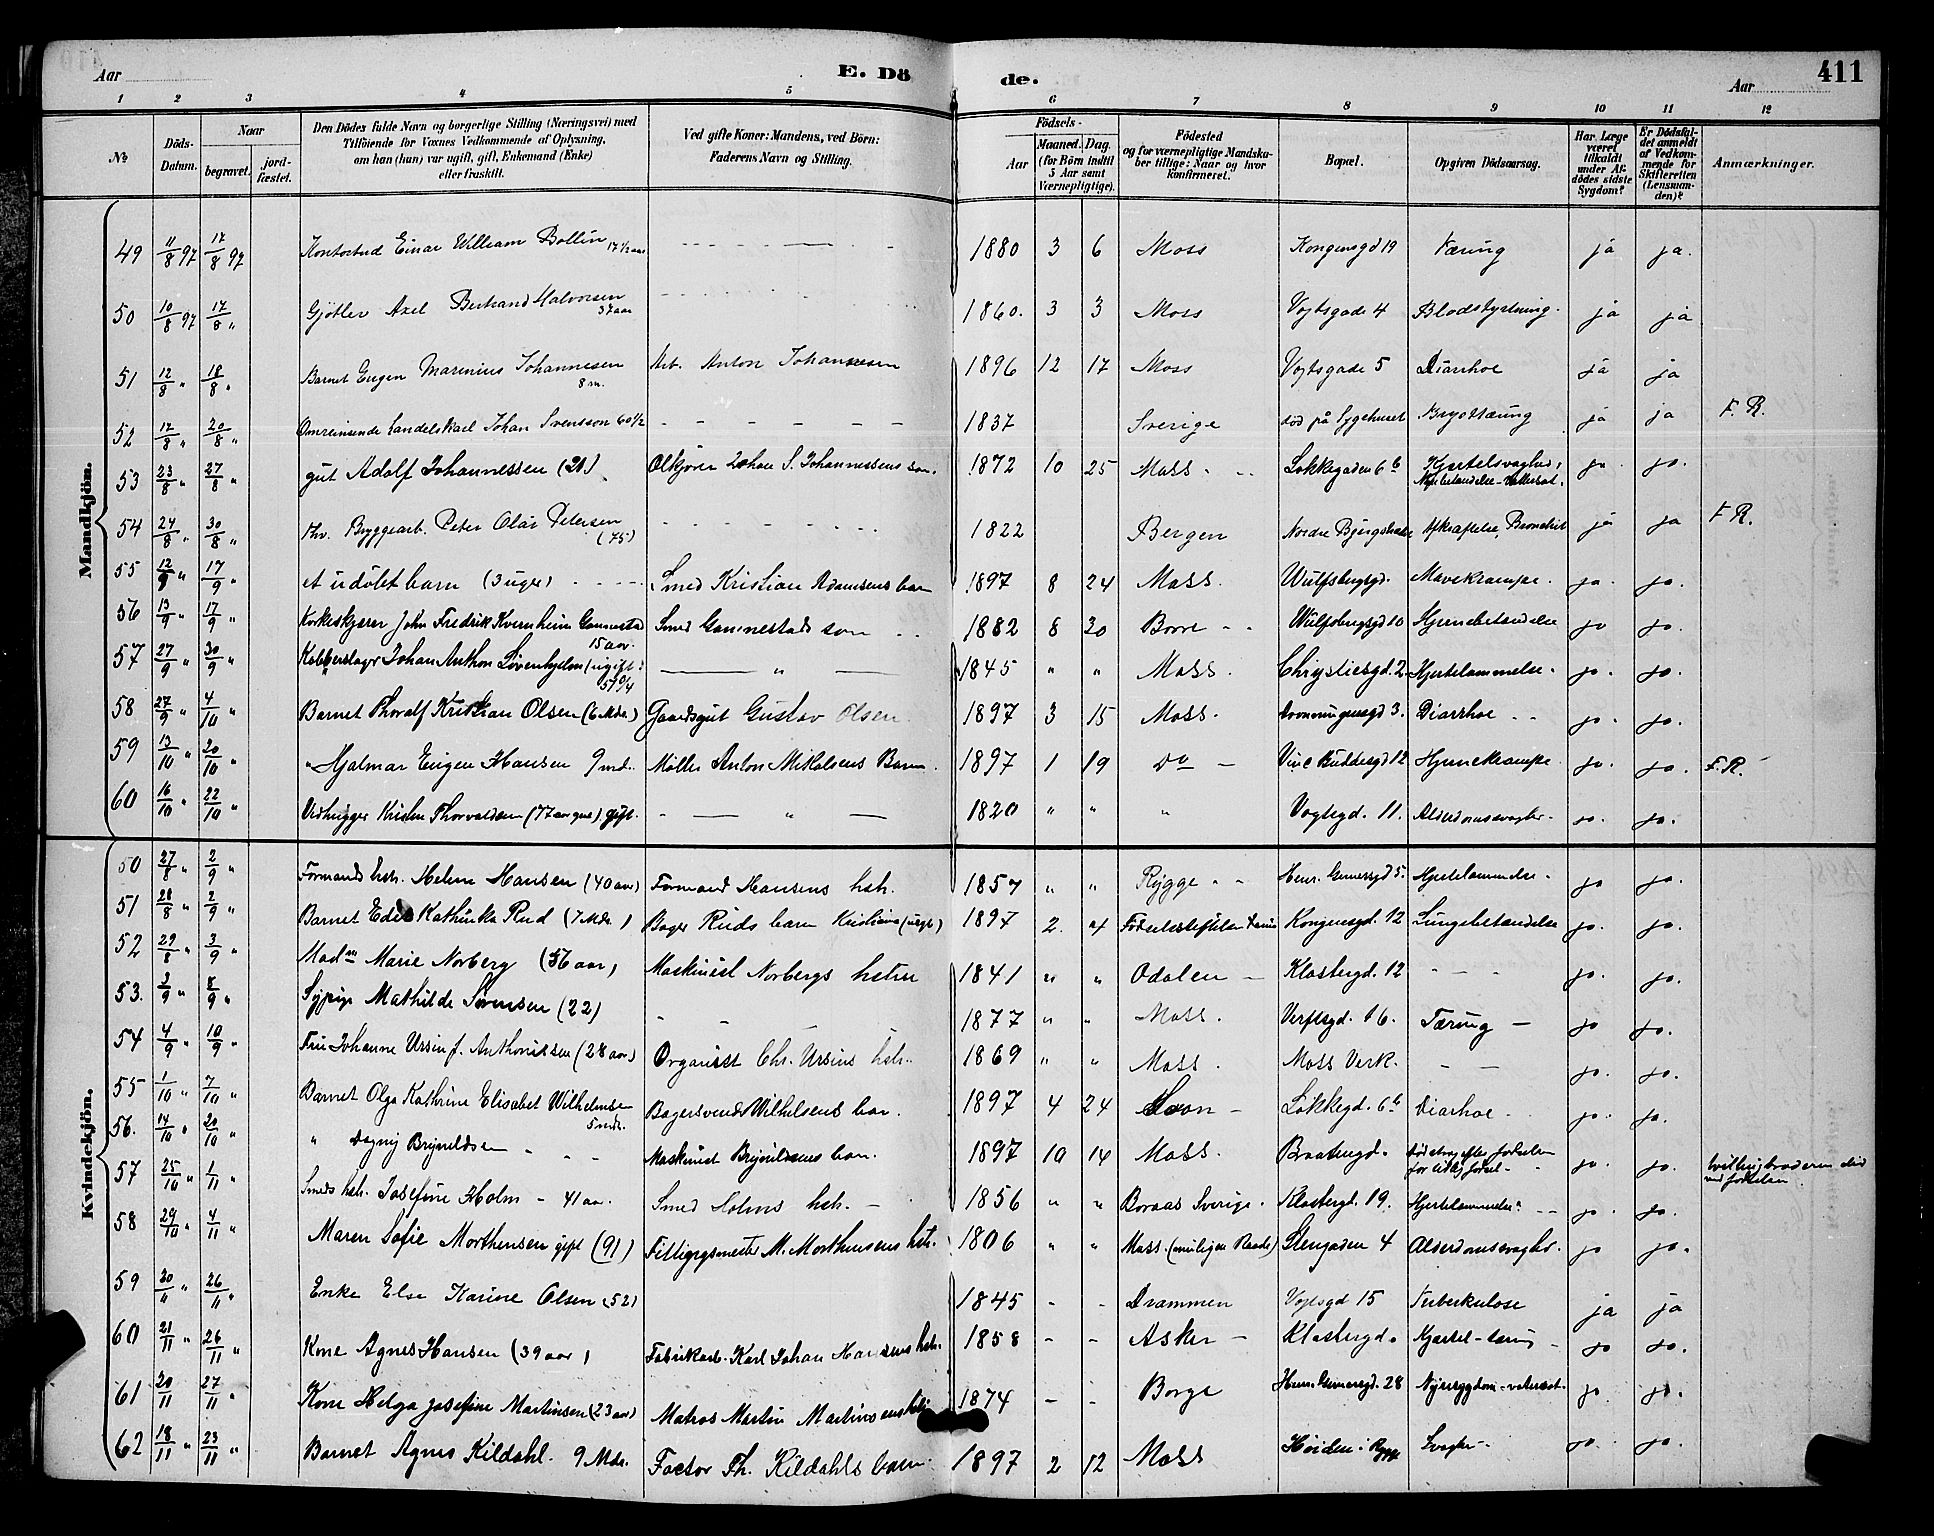 Aar
E. Dö
de.
Aar
411
1 2 3 4 5 6 7 8 9 10 11 12
No
Döds-Datum.
Naar
begravet.
jord-fæstet.
Den Dödes fulde Navn og borgerlige Stilling (Næringsvei) med
Tilföiende for Voxnes Vedkommende af Oplysning,
om han (hun) var ugift, gift, Enkemand (Enke)
eller fraskilt.
Ved gifte Koner: Mandens, ved Börn:
Faderens Navn og Stilling.
Födsels-
Aar
Maaned. Dag.
(for Börn indtil
5 Aar samt
Værnepligtige).
Födested
og for værnepligtige Mandska-
ber tillige: Naar og hvor
konfirmeret.
Bopæl.
Opgiven Dödsaarsag.
Har Læge
været
tilkaldt
under Af-
dödes sidste
Sygdom?
Er Dödsfal-
det anmeldt
af Vedkom-
mende for
Skifteretten
(Lensman-
den)?
Anmærkninger.
Mandkjön.
49 11/8 97 17/8 97 Einar William Bollin 17 1/2 aar 1880 3 6 Moss Kongensgd 19 Tæring ja ja.
50 10/8 97 17/8 " Gjötler Axel Bertrand Halvorsen 37 aar 1860. 3 3 Moss Vogtsgade 4 Blodstyrtning. ja ja
51 12/8 " 18/8 " Barnet Eugen Marinius Johannesen 8 m. Arb. Anton Johannesen 1896 12 17 Moss Vogtsgade 5 Diarrhoe ja ja
52 17/8 " 20/8 " Omreisende Handelskarl Johan Svensson 60 1/2 1837 Sverige död på Sygehuset Brysttæring ja ja F. R.
53 23/8 " 27/8 " gut Adolf Johannessen Ölkjörer Johan S. Johannessens søn. 1872 10 25 Moss Løkkegaden 6 b Nyrebetændelse - Vattersot. ja ja.
54 24/8 " 30/8 " Bryggearb. Peter Olai Petersen (75) 1822 Bergen Nordre Afkræftelse, Bronchit ja ja F. R.
55 12/9 " 17/9 " et udöbt barn (3 uger) Smed Kristian Adamsens barn 1897 8 24 Moss. Wulfsbergsgd. Mavekrampe. ja. ja.
56 13/9 " 17/9 " Korkeskjærer John Fredrik Kvernheim Gannestad 15 aar. Smed Gannestads søn 1882 8 30 Borre Wulfsbergsgd 10 Hjernebetændelse ja ja.
57 27/9 " 30/9 " Kobberslager Johan Anthon Løvenhjelm (ugift) " 1845 " " Moss. Chrystiesgd. 2 Hjertelammelse. ja. ja.
58 27/9 " 4/10 " Barnet Thoralf Kristian Olsen (6 Mdr.) Gaardsgut Gustav Olsen. 1897 3 15 Moss. Dronningensgd 3. Diarrhoe ja. ja.
59 13/10 " 20/10 " " Hjalmar Eugen Hansen 9 md. Møller Anton Mikalsens Barn. 1897 1 19 Do Vinc Buddesgd 12 Hjernekrampe ja. ja. F. R.
60 16/10 " 22/10 " Vedhugger Kristen Thorvaldsen (77 aar) gift. " 1820 " " " Vogtsgd. 11. Alderdomssvaghed. ja. ja.
Kvindekjön.
50 27/8 " 2/9 " Formands hstr. Helene Hansen (40 aar) Formand Hansens hstr. 1857 " " Rygge Henr. Gernersgd 5. Hjertelammelse. ja ja.
51 28/8 " 2/9 " Barnet Kathinka Rud (7 Mdr.) Bager Ruds barn Kristiania 1897 2. Kongensgd. 12 Lungebetændelse ja. ja.
52 29/8 " 3/9 " Madm Marie Norberg (56 aar) Maskinist Norbergs hstru 1841 " " Odalen Klostergd. 12 ja. ja.
53. 3/9 " 8/9 " Sypige Mathilde Sørensen (22) 1877 " " Moss. Verftsgd. 16. Tæring ja ja.
54 4/9 " 10/9 " Fru Johanne Ursin f. Anthonisen (28 aar) Organist Chr. Ursins hstr. 1869 " " Moss. Moss Verk. ja. ja.
55 1/10 " 7/10 " Barnet Olga Kathrine Elisabet Wilhelmsen 5 mdr. Bagersvend Wilhelmsens barn. 1897 4 24 Løkkegd. 6 b Diarhoe ja. ja.
56. 14/10 " 20/10 " " Dagny Brynildsen Maskinist Brynildsens barn. 1897 10 14 Moss. Braatengd. ja. ja.
57 25/10 " 1/11 " Smeds hstr. Josefine Holm 41 aar. Smed Holms hstr. 1856 " " Boraas Sverige. Klostergd. 19. Hjertelammelse ja. ja.
58 29/10 " 4/11 " Maren Sofie Morthensen gift (91) M. Morthensens hstr. 1806 " " Moss. (muligen Raade) Stengaden 4 Alderdomssvaghed. ja ja.
59 20/11 " 26/11 " Enke Else Karine Olsen (52) 1845 Drammen Vogtsgd 15 Tuberkulose ja ja
60 21/11 " 26/11 " Kone Agnes Hansen (39 aar) Fabrikarb. Karl Johan Hansens hstr. 1858 Asker Klostergd. ja ja.
61 20/11 27/11 " Kone Helga Josefine Martinsen (23 aar) Matros Martin Martinsens 1874 Borge Henr. Gernersgd. 28 Nyresygdom - vatersot. ja. ja.
62 18/11 " 23/11 " Barnet Agnes Kildahl. 9 Mdr. Factor Th. Kildahls barn. 1897 2 12 Moss Høiden i Rygge Svaghed. ja. ja.